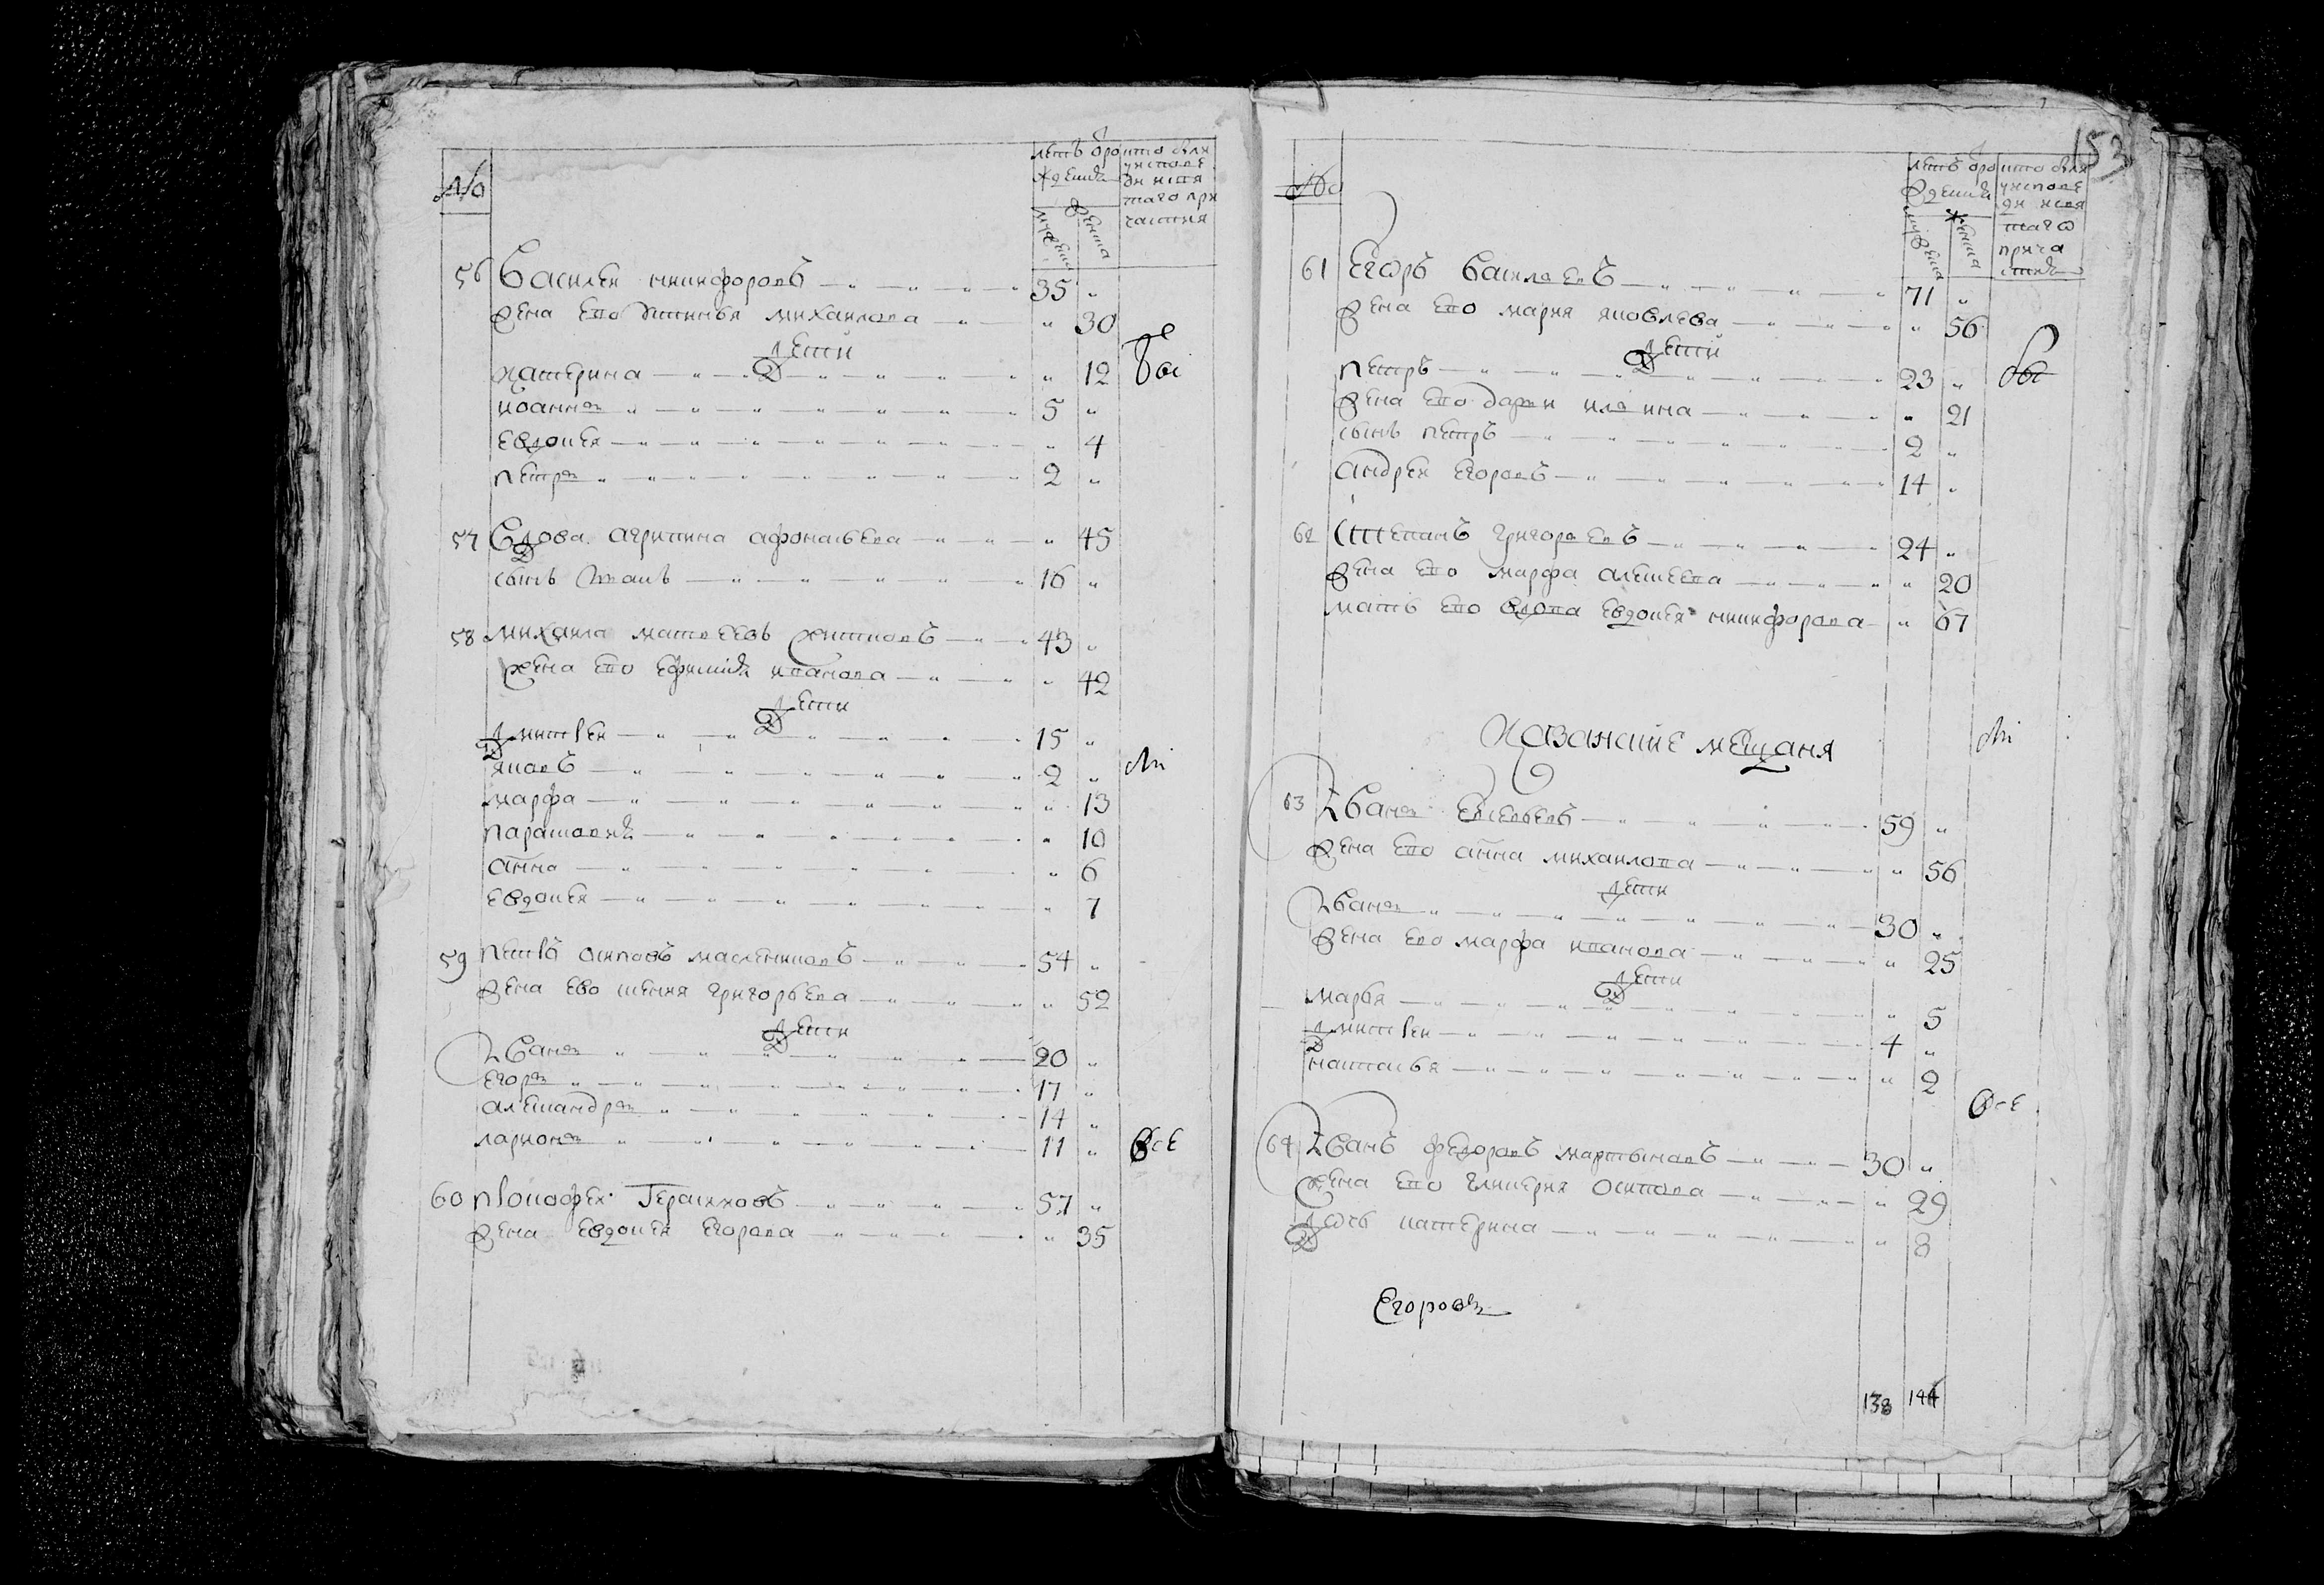 №
летъ ѿро
жденiя
мужеска
женска
кто были
у испове
ди и свя
таго при
частия
56 Василей никифоровъ 35 „
жена ево Устинья михаилова „ 30
дети
катерина „ 12
иоаннъ 5 „
евдокея „ 4
петръ 2 „
бы
57 Вдова агрипина афонасьева „ 45
сынъ 16 „
58 михаила матвеевъ 43 „
жена ево ефимия иванова „ 42
дети
дмитрей 15 „
яковъ 2 „
марфа „ 13
парасковия „ 10
анна „ 6
евдокея „ 7
59 петръ осиповъ масленниковъ 54 „
жена ево ксения григорьева „ 52
дети
Иванъ 20 „
егоръ 17 „
александръ 14 „
ларионъ 11 „
все
60 прокофей Герасимовъ 57 „
жена евдокея егорова „ 35
153
№
летъ ѿро
жденiя
мужеска
женска
кто были
у испове
ди и свя
таго
прича
стия
61 Егоръ Василаевъ 71 „
жена ево мария яковлева „ 56
дети
петръ 23 „
жена ево дарьи илаина „ 21
сынъ петръ 2 „
андрей егоровъ 14 „
бы
62 Степанъ григораевъ 24 „
жена ево марфа алексеева „ 20
мать ево вдова евдокея никифорова „ 67
Казанские мещаня
63 Иванъ Евсевьевъ 59 „
жена ево анна михаилова „ 56
дети
Иванъ 30 „
жена ево марфа иванова „ 25
дети
марья „ 5
дмитрей 4 „
наталья „ 2
все
64 Иванъ федоровъ мартыновъ 30 „
жена ево гликерия осипова „ 29
дочь катерина „ 8
Егоровъ
138 144